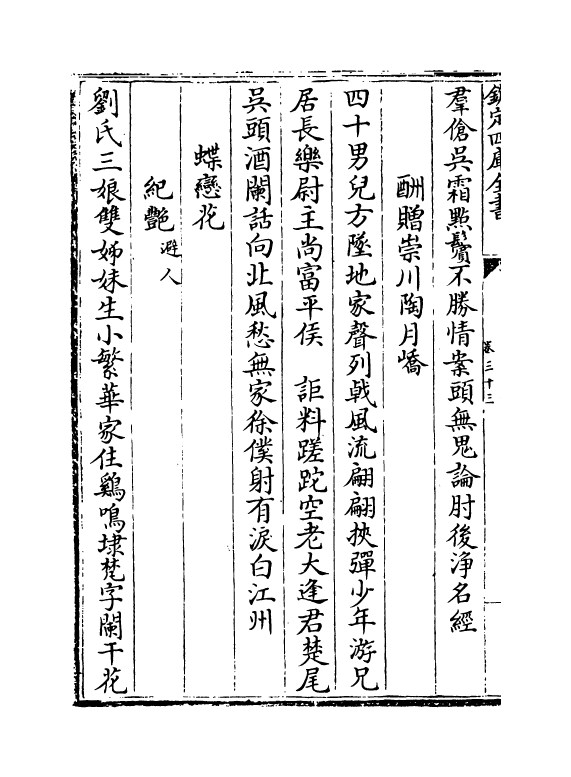 欽定四庫全書
卷三十三
羣傖吳霜點鬢不勝情案頭無鬼論肘後淨名經
酬贈崇川陶月嶠
四十男兒方墜地家聲列戟風流翩翩挾彈少年游兄
居長樂尉主尚富平侯　詎料蹉跎空老大逢君楚尾
吳頭酒闌話向北風愁無家徐僕射有淚白江州
蝶戀花
紀艷避人
劉氏三娘雙姊妹生小繁華家住鷄鳴埭梵字闌干花